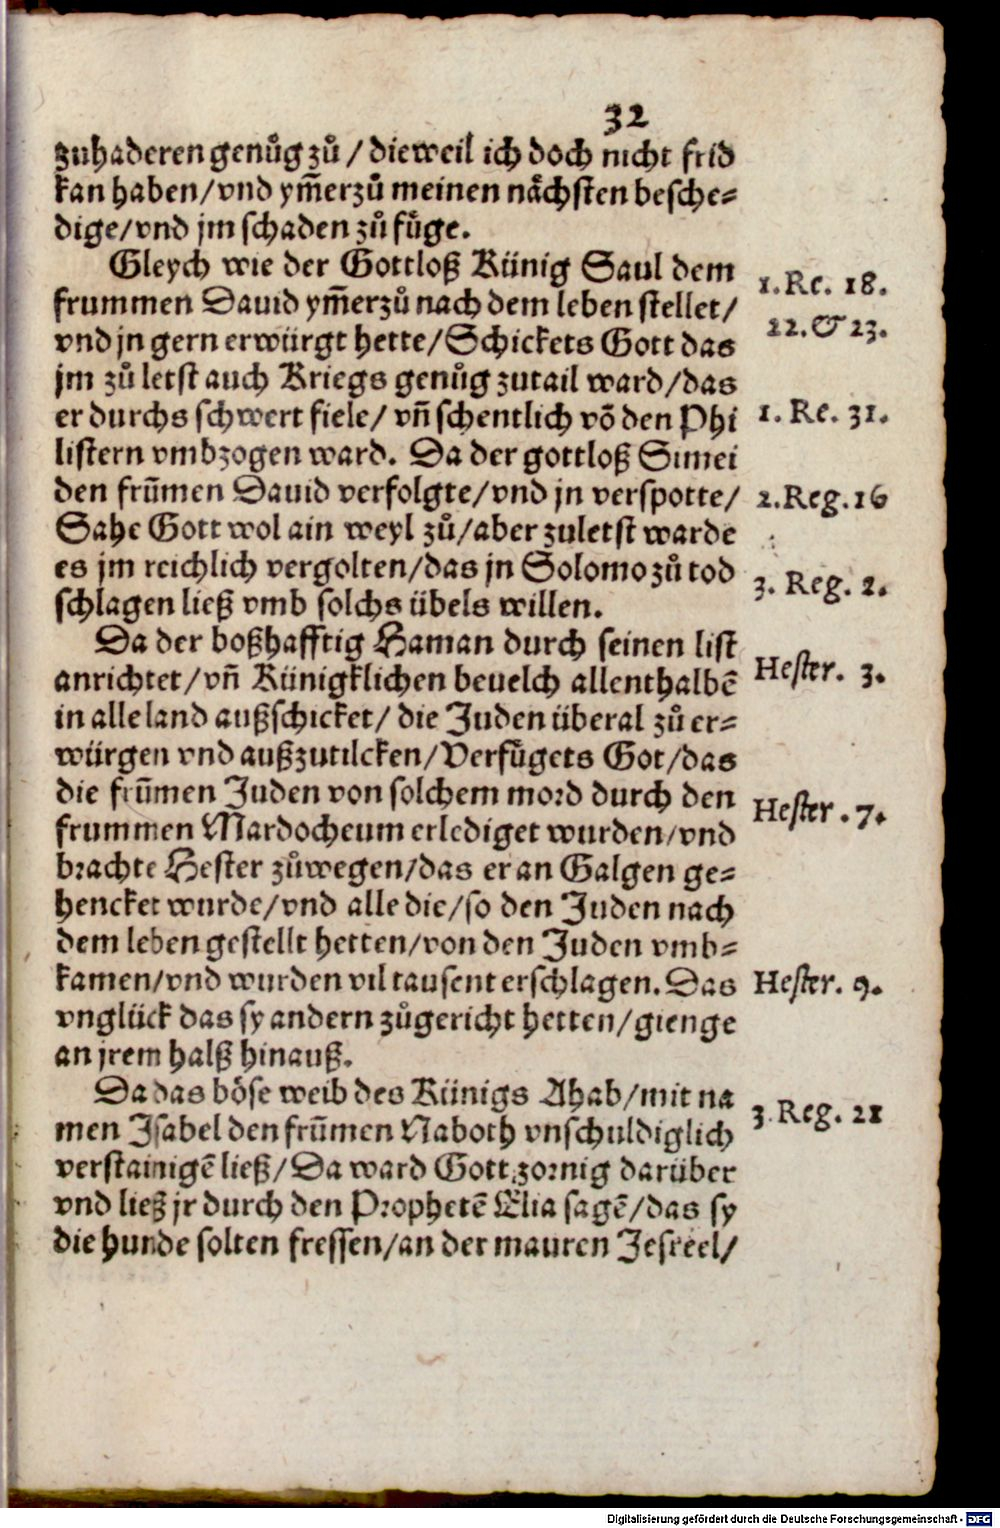 32
zuhaderen genůg zů / dieweil ich doch nicht frid
kan haben/vnd ym̃erzů meinen nächsten besche-
dige/vnd jm schaden zů fůge.
Gleych wie der Gottloß Künig Saul dem
1. Re. 18.
frummen Dauid ym̃erzů nach dem leben stellet/
22. & 23.
vnd jn gern erwürgt hette/Schickets Gott das
jm zů letst auch Kriegs genůg zutail ward/das
er durchs schwert fiele/ vñ schentlich võ den Phi
1. Re. 31.
listern vmbzogen ward. Da der gottloß Simei
den frũmen Dauid verfolgte/vnd jn verspotte/
2. Reg. 16
Sahe Gott wol ain weyl zů/aber zuletst warde
es jm reichlich vergolten/das jn Solomo zů tod
3. Reg. 2.
schlagen ließ vmb solchs übels willen.
Da der boßhafftig Haman durch seinen list
anrichtet/vñ Künigklichen beuelch allenthalbẽ
Hester. 3.
in alle land außschicket/ die Juden überal zů er-
würgen vnd außzutilcken/Verfůgets Got/das
die frũmen Juden von solchem mord durch den
Hester. 7.
frummen Mardocheum erlediget wurden/vnd
brachte Hester zůwegen/das er an Galgen ge-
hencket wurde/vnd alle die/so den Juden nach
dem leben gestellt hetten/von den Juden vmb-
kamen/vnd wurden vil tausent erschlagen. Das
Hester. 9.
vnglück das sy andern zůgericht hetten/gienge
an jrem halß hinauß.
Da das böse weib des Künigs Ahab/mit na
3. Reg. 21
men Isabel den frũmen Naboth vnschuldiglich
verstainigẽ ließ/Da ward Gott zornig darüber
vnd ließ jr durch den Prophetẽ Elia sagẽ/das sy
die hunde solten fressen/an der mauren Jesreel/
Digitalisierung gefördert durch die Deutsche Forschungsgemeinschaft - DFG